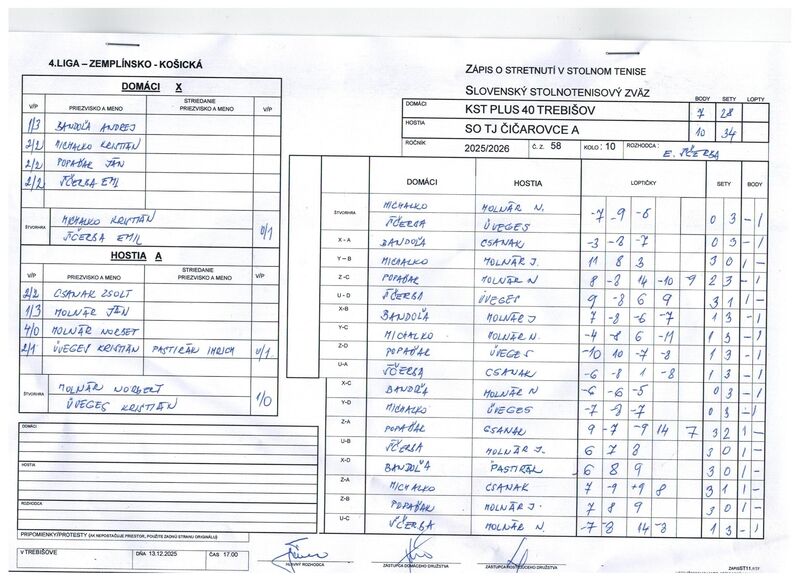 4.LIGA – ZEMPLÍNSKO - KOŠICKÁ
DOMÁCI X
V/P PRIEZVISKO A MENO STRIEDANIE PRIEZVISKO A MENO V/P
1/3 BANDOĽA ANDREJ
2/2 MICHALKO KRISTIÁN
2/2 POPAĎAK JÁN
2/2 ŠČERBA EMIL
ŠTVORHRA MICHALKO KRISTIÁN
ŠČERBA EMIL 0/1
HOSTIA A
V/P PRIEZVISKO A MENO STRIEDANIE PRIEZVISKO A MENO V/P
2/2 CSANAK ZSOLT
1/3 MOLNÁR JÁN
4/0 MOLNÁR NORBET
2/1 ÜVEGES KRISTIÁN PASTIRÁK IMRICH 0/1
ŠTVORHRA MOLNÁR NORBERT
ÜVEGES KRISTIÁN 1/0
DOMÁCI
HOSTIA
ROZHODCA
PRIPOMIENKY/PROTESTY (AK NEPOSTAČUJE PRIESTOR, POUŽITE ZADNÚ STRANU ORIGINÁLU)
v TREBIŠOVE DŇA 13.12.2025 ČAS 17.00
ZÁPIS O STRETNUTÍ V STOLNOM TENISE
SLOVENSKÝ STOLNOTENISOVÝ ZVÄZ
BODY SETY LOPTY
DOMÁCI KST PLUS 40 TREBIŠOV 7 28
HOSTIA SO TJ ČIČAROVCE A 10 34
ROČNÍK 2025/2026 Č. Z. 58 KOLO: 10 ROZHODCA: E. ŠČERBA
DOMÁCI HOSTIA LOPTIČKY SETY BODY
ŠTVORHRA MICHALKO MOLNÁR N.
ŠČERBA ÜVEGES -7 -9 -6 0 3 - 1
X - A BANDOĽA CSANAK -3 -8 -7 0 3 - 1
Y – B MICHALKO MOLNÁR J. 11 8 3 3 0 1 -
Z –C POPAĎAK MOLNÁR N 8 -8 14 -10 9 2 3 - 1
U - D ŠČERBA ÜVEGES 9 -8 6 9 3 1 1 -
X-B BANDOĽA MOLNÁR J 7 -8 -6 -7 1 3 - 1
Y-C MICHALKO MOLNÁR N. -4 -8 6 -11 1 3 - 1
Z-D POPAĎAK ÜVEGES -10 10 -7 -8 1 3 - 1
U-A ŠČERBA CSANAK -6 -8 1 -8 1 3 - 1
X-C BANDOĽA MOLNÁR N -6 -6 -5 0 3 - 1
Y-D MICHALKO ÜVEGES -7 -8 -7 0 3 - 1
Z-A POPAĎAK CSANAK 9 -7 -9 14 7 3 2 1 -
U-B ŠČERBA MOLNÁR J. 6 7 8 3 0 1 -
X-D BANDOĽA PASTIRÁK 6 8 9 3 0 1 -
Z-A MICHALKO CSANAK 7 -9 +9 8 3 1 1 -
Z-B POPAĎAK MOLNÁR J. 7 8 9 3 0 1 -
U-C ŠČERBA MOLNÁR N. -7 -8 14 -8 1 3 - 1
HLAVNÝ ROZHODCA ZÁSTUPCA DOMÁCEHO DRUŽSTVA ZÁSTUPCA HOSŤUJÚCEHO DRUŽSTVA